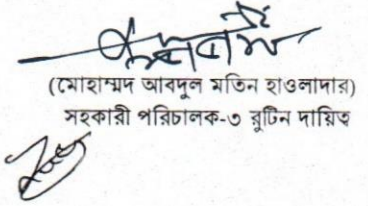 (মোহাম্মদ আবদুল মতিন হাওলাদার)
সহকারী পরিচালক-৩ রুটিন দায়িত্ব